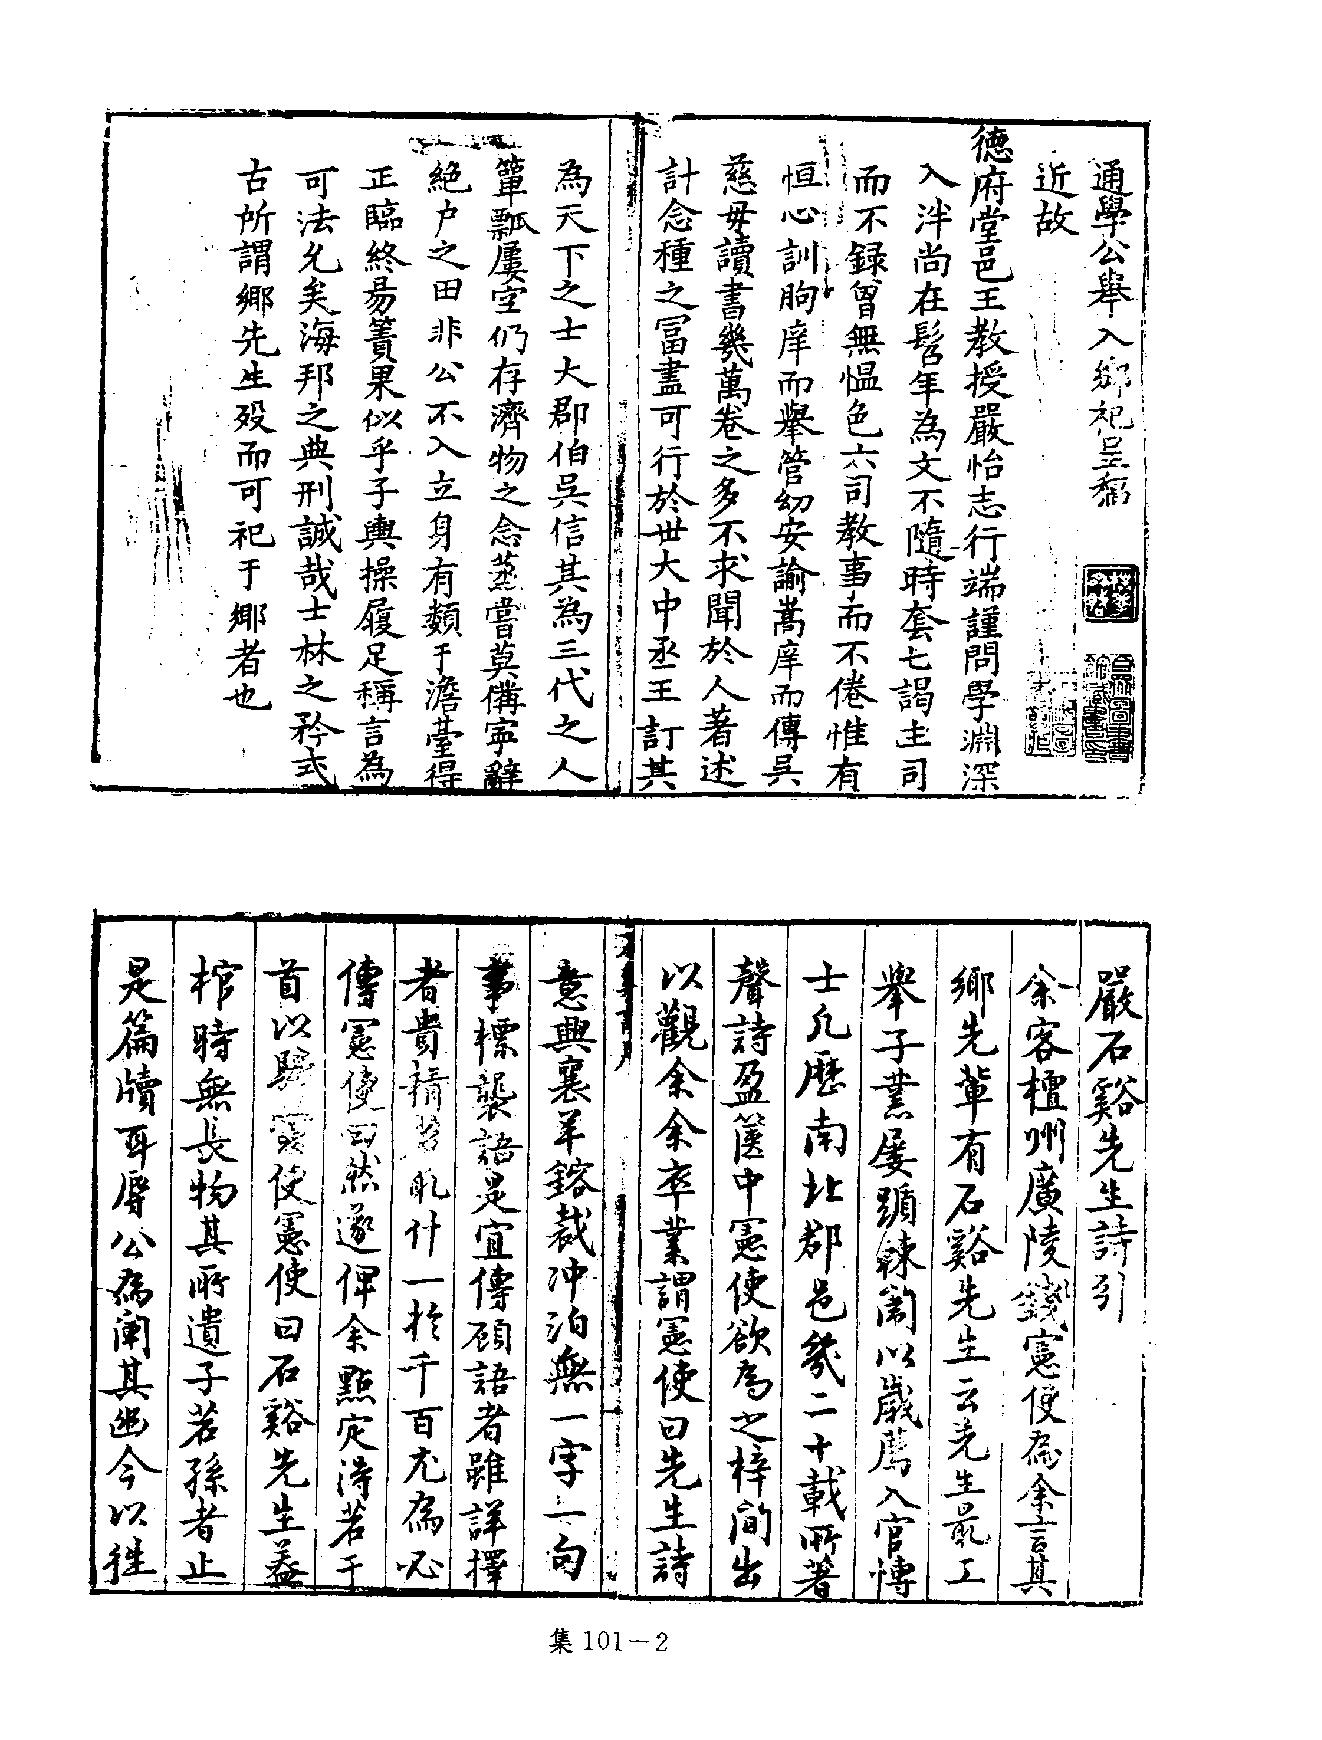 通學公舉入鄉祀呈稿
近故
德府堂邑王教授嚴怡志行端謹問學淵深
入泮尚在髫年為文不隨時套七謁主司
而不録曾無愠色六司教事而不倦惟有
恒心訓朐庠而舉管幼安諭嵩庠而傳吳
慈毋讀書幾萬卷之多不求聞於人著述
計念種之冨盡可行於世大中丞王訂其
為天下之士大郡伯吳信其為三代之人
簞瓢屢空仍存濟物之念蒸嘗莫備寧辭
絕户之田非公不入立身有類于澹臺得
正臨終易簀果似乎子輿操履足稱言為
可法允矣海邦之典刑誠哉士林之矜式
古所謂鄉先生殁而可祀于鄉者也
嚴石谿先生詩引
余客檀州廣陵錢憲使為余言其
鄉先軰有石谿先生云先生最工
舉子業屡躓棘闈以歲薦入官博
士凡歷南北郡邑幾二十載所著
聲詩盈篋中憲使欲為之梓间出
以觀余余卒業謂憲使曰先生詩
意興襄羊鎔裁冲泊無一字一句
事標襲語是宜傳顾語者雖詳擇
者貴精苟取什一於千百尤為必
傳憲使曰然遂俾余點定淂若干
首以歸憲使憲使曰石谿先生葢
棺時無長物其所遺子若孫者止
是篇牘耳辱公為闡其幽今以徃
集 101－2